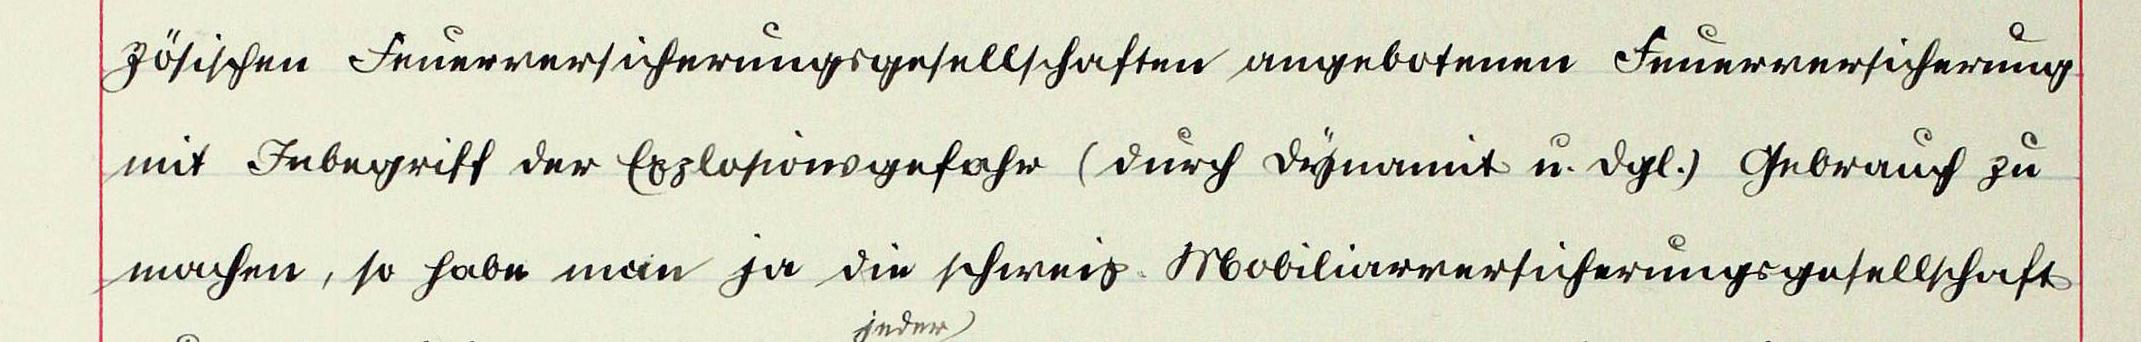 zösischen Feuerversicherungsgesellschaften angebotenen Feuerversicherung
mit Inbegriff der Explosionsgefahr (durch Dynamit u. dgl.) Gebrauch zu
machen, so habe man ja die schweiz. Mobiliarversicherungsgesellschaft
jeder